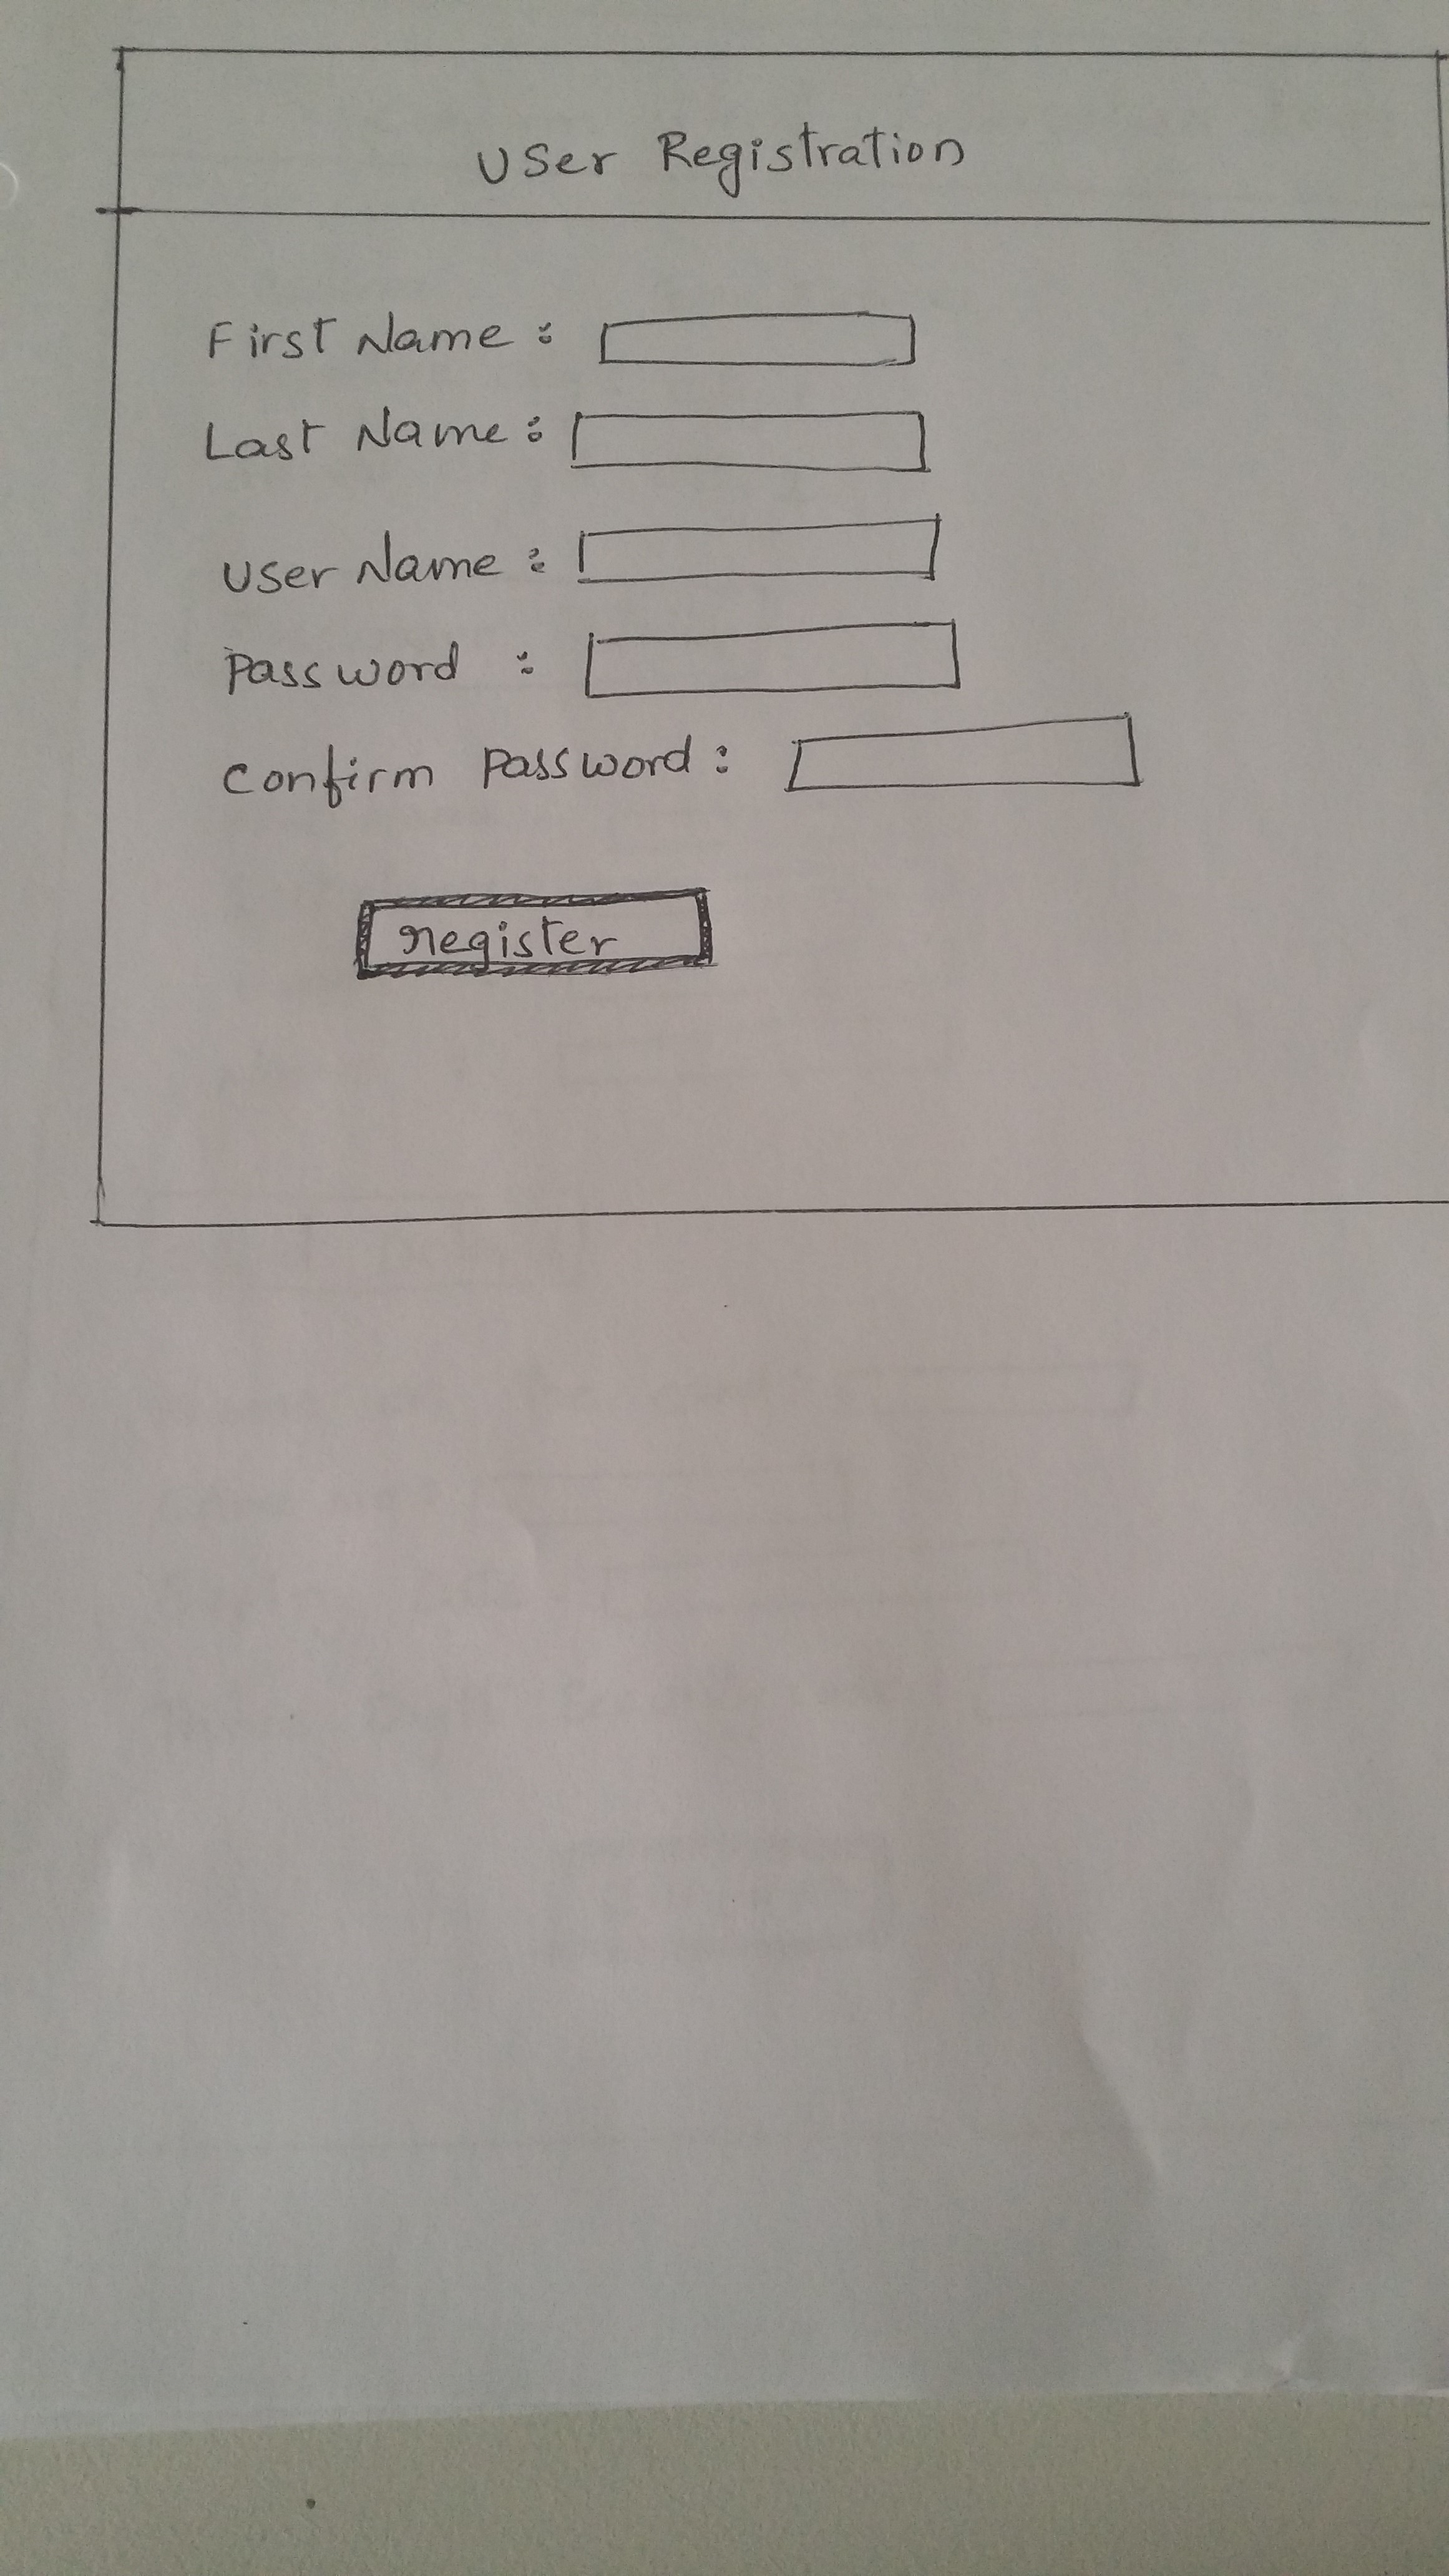 User Registration
First Name :
Last Name :
User Name :
Password :
Confirm Password :
register